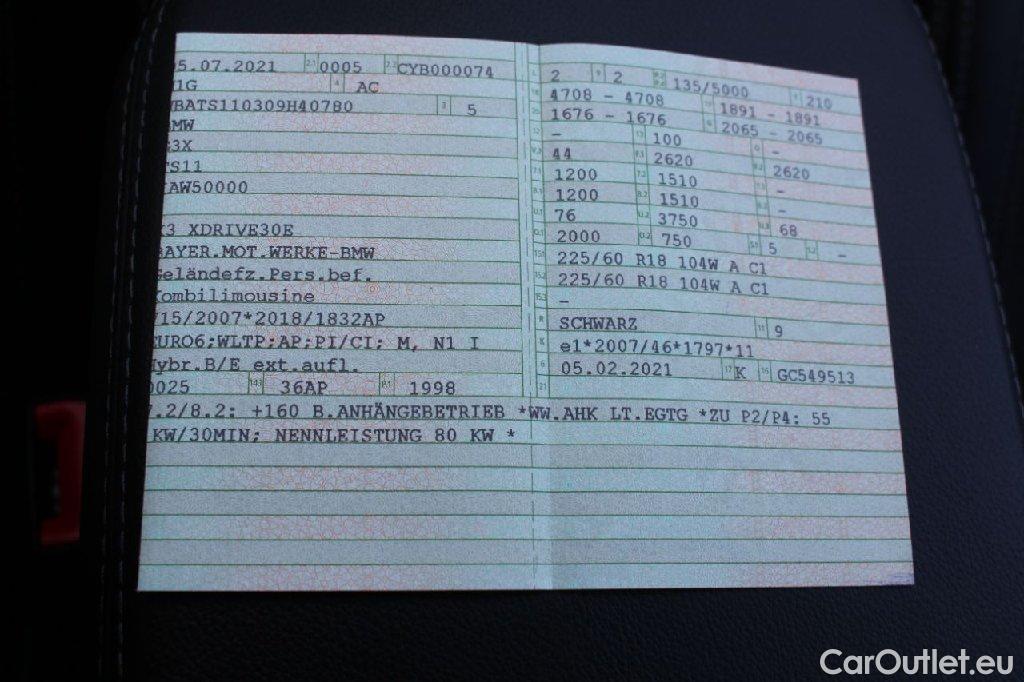 5.07.2021 2.1 0005 2.2 CYB000074
1G 4 AC
BATS110309H40780 3 5
MW
3X
S11
AW50000
3 XDRIVE30E
AYER.MOT.WERKE-BMW
eländefz.Pers.bef.
ombilimousine
715/2007*2018/1832AP
EURO6;WLTP;AP;PI/CI; M, N1 I
ybr.B/E ext.aufl.
0025 14.1 36AP P.1 1998
L 2 9 2 P.2 P.4 135/5000 T 210
18 4708 - 4708 19 1891 - 1891
20 1676 - 1676 G 2065 - 2065
12 - 13 100 Q -
V.7 44 F.1 2620 F.2 2620
7.1 1200 7.2 1510 7.3 -
8.1 1200 8.2 1510 8.3 -
U.1 76 U.2 3750 U.3 68
O.1 2000 O.2 750 S.1 5 S.2 -
15.1 225/60 R18 104W A C1
15.2 225/60 R18 104W A C1
15.3 -
R SCHWARZ 11 9
K e1*2007/46*1797*11
6 05.02.2021 17 K 16 GC549513
21
7.2/8.2: +160 B.ANHÄNGEBETRIEB *WW.AHK LT.EGTG *ZU P2/P4: 55
KW/30MIN; NENNLEISTUNG 80 KW *
CarOutlet.eu